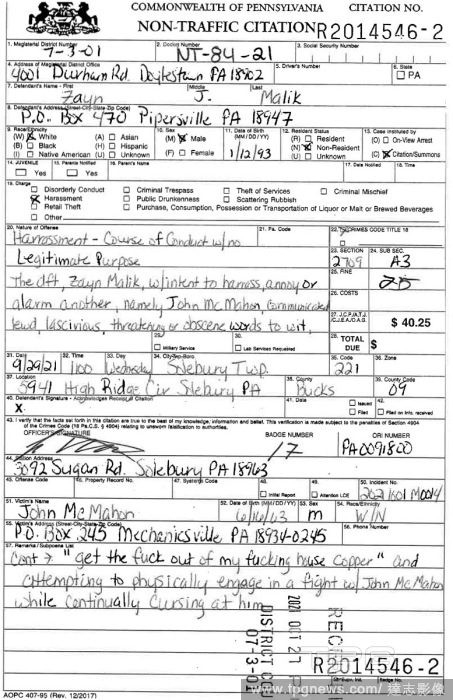 COMMONWEALTH OF PENNSYLVANIA CITATION NO.
NON-TRAFFIC CITATION R2014546-2
1. Magisterial District Number 2. Docket Number 3. Social Security Number
7-3-01 NT-84-21
4. Address of Magisterial District Office 5. Driver's Number 6. State
4001 Durham Rd. Doylestown PA 18902 PA
7. Defendant's Name - First Middle Last
Zayn J. Malik
8. Defendant's Address (Street-City-State-Zip Code)
P.O. Box 470 Pipersville PA 18947
9. Race/Ethnicity 10. Sex 11. Date of Birth (MM / DD / YY) 12. Resident Status 13. Case Instituted by
(W) White (A) Asian (M) Male 1/12/93 (R) Resident (O) On-View Arrest
(B) Black (H) Hispanic (N) Non-Resident
(I) Native American (U) Unknown (F) Female (U) Unknown (C) Citation/Summons
14. JUVENILE 15. Parents Notified 16. Parent's Name 17. Date Notified 18. Time
Yes Yes
19. Charge
Disorderly Conduct Criminal Trespass Theft of Services Criminal Mischief
Harassment Public Drunkenness Scattering Rubbish
Retail Theft Purchase, Consumption, Possession or Transportation of Liquor or Malt or Brewed Beverages
Other
20. Nature of Offense 21. Pa. Code 22. CRIMES CODE TITLE 18
Harrassment - Course of Conduct w/no
23. SECTION 24. SUB SEC.
Legitimate Purpose 2709 A3
25. FINE
The dft, Zayn Malik, w/intent to harass, annoy or
26. COSTS
alarm another, namely John McMahon, communicated
27. J.C.P./A.T.J./C.J.E.A./O.A.G. $ 40.25
lewd, lascivious, threatening or obscene words to wit,
28. TOTAL DUE $
29. Military Service 30. Lab Services Requested
31. Date 32. Time 33. Day 34. City-Twp-Boro 35. Code 36. Zone
9/29/21 1100 Wednesday Solebury Twp. 221
37. Location 38. County 39. County Code
5941 High Ridge Cir Solebury PA Bucks 09
40. Defendant's Signature - Acknowledges Receipt of Citation 41. Date 42. Issued
X. Filed Filed on Info. received
43. I verify that the facts set forth in this citation are true to the best of my knowledge, information and belief. This verification is made subject to the penalties of Section 4904
of the Crimes Code (18 Pa.C.S. § 4904) relating to unsworn falsification to authorities.
OFFICER'S SIGNATURE BADGE NUMBER ORI NUMBER
17 PA0091800
44. Station Address
3092 Sugan Rd. Solebury PA 18963
45. Offense Code 46. Property Record No. 47. System Code 48. Initial Report 49. Attention LCE 50. Incident No.
51. Victim's Name 52. Date of Birth (MM/DD/YY) 53. Sex 54. Race/Ethnicity
John McMahon M W/N
55. Victim's Address (Street-City-State-Zip Code) 56. Phone Number
P.O. Box 245 Mechanicsville PA 18934-0245
57. Remarks/Subpoena List
Cont → "get the fuck out of my fucking house copper" and
attempting to physically engage in a fight w/ John McMahon
while continually cursing at him
2021 OCT 27
DISTRICT CO
07-3-01
R2014546-2
AOPC 407-95 (Rev. 12/2017)
www.tpgnews.com/達志影像